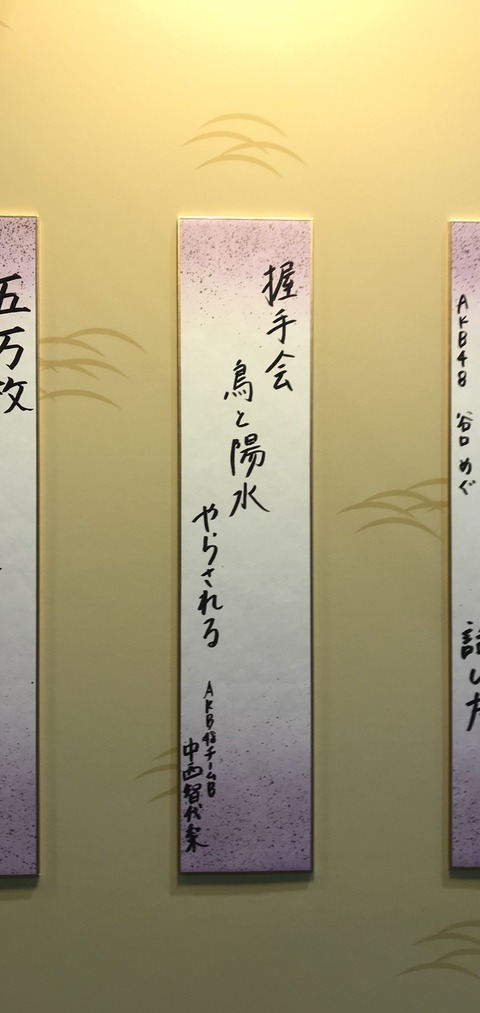 AKB48 谷口 めぐ
握手会
鳥と陽水
やらされる
AKB48チームB
中西智代梨
五万枚